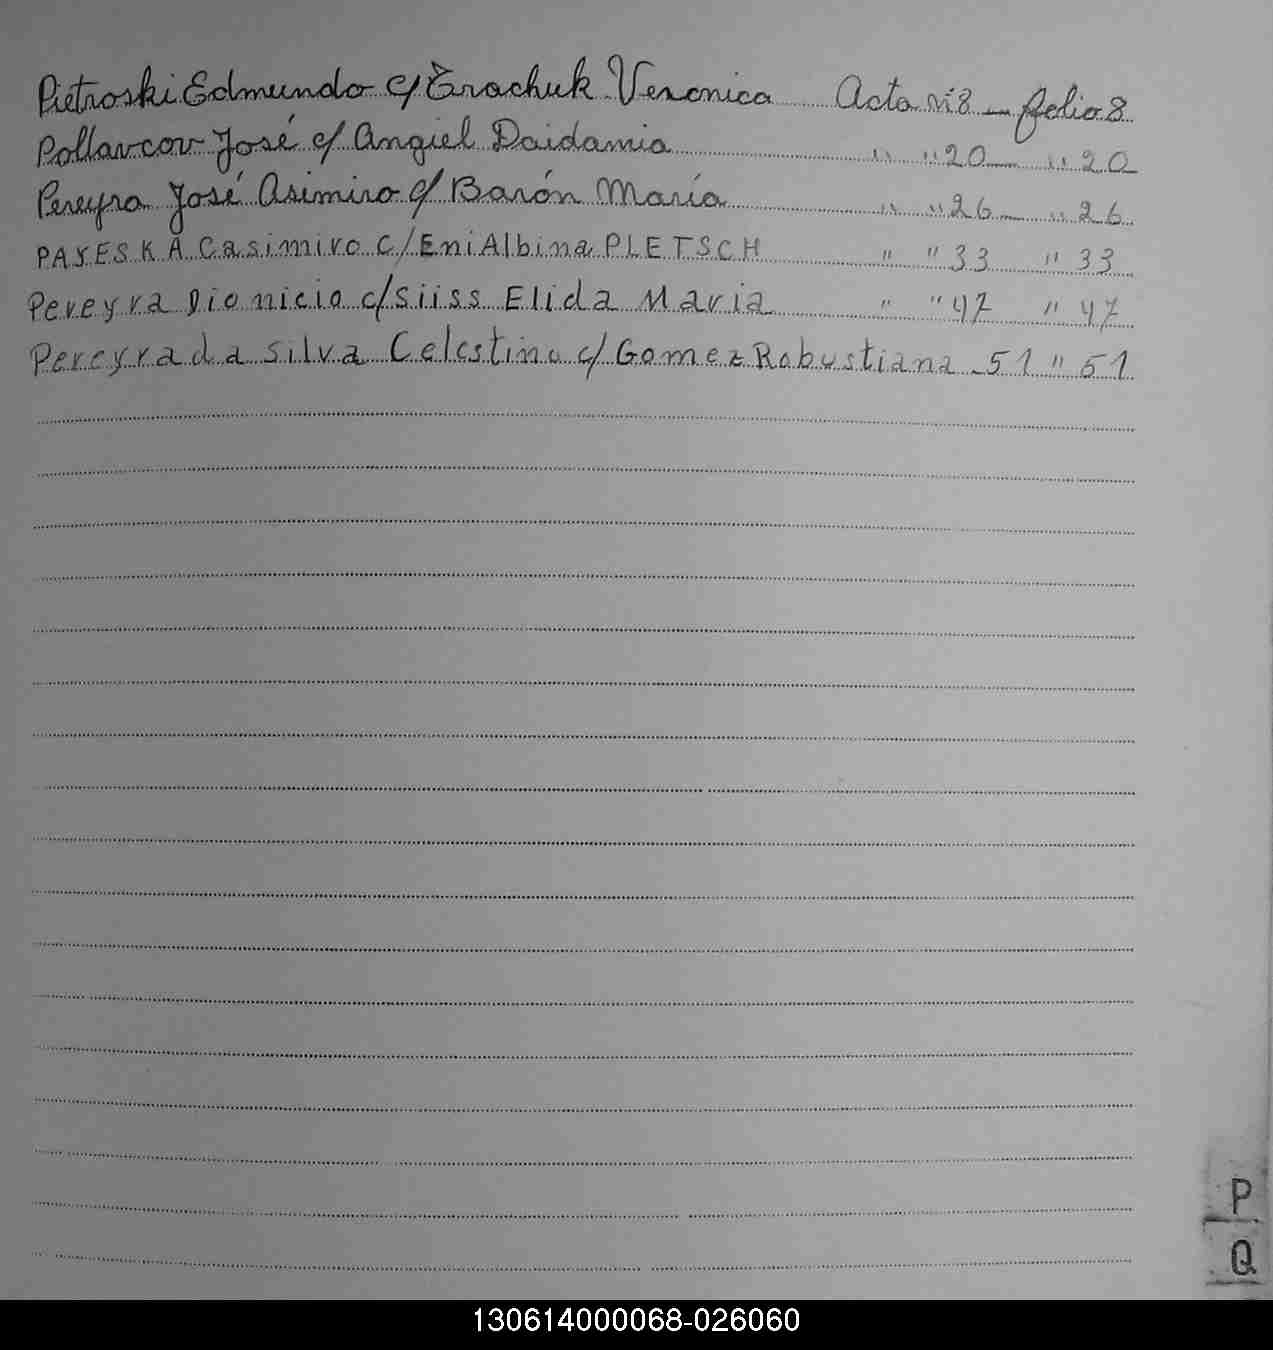 Pietroski Edmundo c/ Erachuk Veronica Acta nº 8 - folio 8
Pollarcov José c/ Angiel Daidamia " " 20 - " 20
Pereyra José Asimiro c/ Barón María " " 26 - " 26
PAYESKA Casimiro c/ Eni Albina PLETSCH " " 33 " 33
Pereyra Dionicio c/ Siiss Elida Maria " " 47 " 47
Pereyra da silva Celestino c/ Gomez Robustiana - 51 " 51
P
Q
130614000068-026060